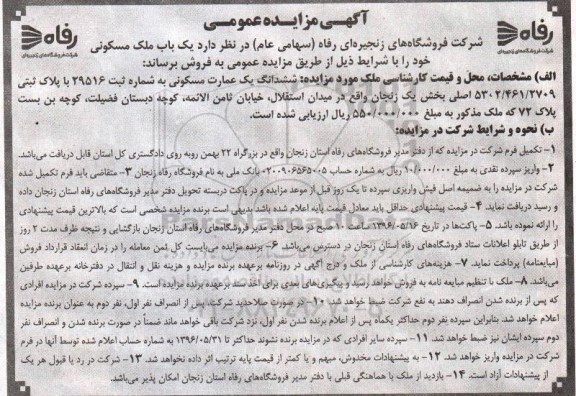 آگهی مزایده عمومی
رفاه
فروشگاه‌های زنجیره‌ای
رفاه
شرکت فروشگاه‌های زنجیره‌ای
شرکت فروشگاه‌های زنجیره‌ای رفاه (سهامی عام) در نظر دارد یک باب ملک مسکونی
خود را با شرایط ذیل از طریق مزایده عمومی به فروش برساند:
الف) مشخصات، محل و قیمت کارشناسی ملک مورد مزایده: ششدانگ یک عمارت مسکونی به شماره ثبت ۲۹۵۱۶ با پلاک ثبتی
۵۳۰۲/۴۶۱/۲۷۰۹ اصلی بخش یک زنجان واقع در میدان استقلال، خیابان ثامن الائمه، کوچه دبستان فضیلت، کوچه بن بست
پلاک ۷۲ که ملک مذکور به مبلغ ۵۵۰/۰۰۰/۰۰۰ ریال ارزیابی شده است.
ب) نحوه و شرایط شرکت در مزایده:
۱- تکمیل فرم شرکت در مزایده که از دفتر مدیر فروشگاه‌های رفاه استان زنجان واقع در بزرگراه ۲۲ بهمن روبه روی دادگستری کل استان قابل دریافت می‌باشد.
۲- واریز سپرده نقدی به مبلغ ۱۰/۰۰۰/۰۰۰ ریال به شماره حساب ۰۲۰۰۹۰۶۵۶۵۰۰۵ بانک ملی به نام فروشگاه رفاه زنجان ۳- متقاضی باید فرم تکمیل شده
شرکت در مزایده را به ضمیمه اصل فیش واریزی سپرده تا یک روز قبل از موعد مزایده و در پاکت دربسته تحویل دفتر مدیر فروشگاه‌های رفاه استان زنجان داده
و رسید دریافت نمایند. ۴- قیمت پیشنهادی حداقل باید معادل قیمت پایه اعلام شده باشد بدیهی است برنده مزایده شخصی است که بالاترین قیمت پیشنهادی
را ارائه نموده باشد. ۵- پاکت‌ها در تاریخ ۱۳۹۶/۰۵/۱۶ ساعت ۱۰ صبح در محل دفتر مدیر فروشگاه‌های رفاه استان زنجان بازگشایی و نتیجه ظرف مدت ۲ روز
از طریق تابلو اعلانات ستاد فروشگاه‌های رفاه استان زنجان در دسترس می‌باشد. ۶- برنده مزایده می‌بایست کل ثمن معامله را در زمان انعقاد قرارداد فروش
(مبایعنامه) پرداخت نماید. ۷- هزینه‌های کارشناسی از ملک و درج آگهی در روزنامه برعهده برنده مزایده و هزینه نقل و انتقال در دفترخانه برعهده طرفین
می‌باشد. ۸- ملک با تنظیم مبایعه نامه به فروش خواهد رسید و پیگیری‌های بعدی برای اخذ سند برعهده برنده مزایده است. ۹- سپرده شرکت در مزایده افرادی
که پس از برنده شدن انصراف دهند به نفع شرکت ضبط خواهد شد. ۱۰- در صورت صلاحدید شرکت، پس از انصراف نفر اول، نفر دوم به عنوان برنده مزایده
اعلام خواهد شد. بنابراین سپرده نفر دوم حداکثر یکماه پس از اعلام برنده شدن نفر اول، نزد شرکت باقی خواهد ماند ضمناً در صورت برنده شدن و انصراف نفر
دوم سپرده ایشان نیز ضبط خواهد شد. ۱۱- سپرده سایر افرادی که در مزایده برنده نشوند حداکثر تا ۱۳۹۶/۰۵/۳۱ به شماره حساب اعلام شده توسط آنها در فرم
شرکت در مزایده واریز خواهد شد. ۱۲- به پیشنهادات مخدوش، مبهم و یا کمتر از قیمت پایه ترتیب اثر داده نخواهد شد. ۱۳- شرکت در رد یا قبول هر یک
از پیشنهادات آزاد است. ۱۴- بازدید از ملک با هماهنگی قبلی با دفتر مدیر فروشگاه‌های رفاه استان زنجان امکان پذیر می‌باشد.